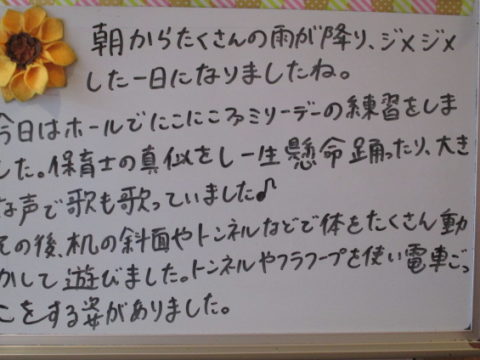 朝からたくさんの雨が降り、ジメジメ
した一日になりましたね。
今日はホールでにこにこファミリーデーの練習をしま
した。保育士の真似をし一生懸命踊ったり、大き
な声で歌も歌っていました♪
その後、机の斜面やトンネルなどで体をたくさん動
かして遊びました。トンネルやフラフープを使い電車ごっ
こをする姿がありました。